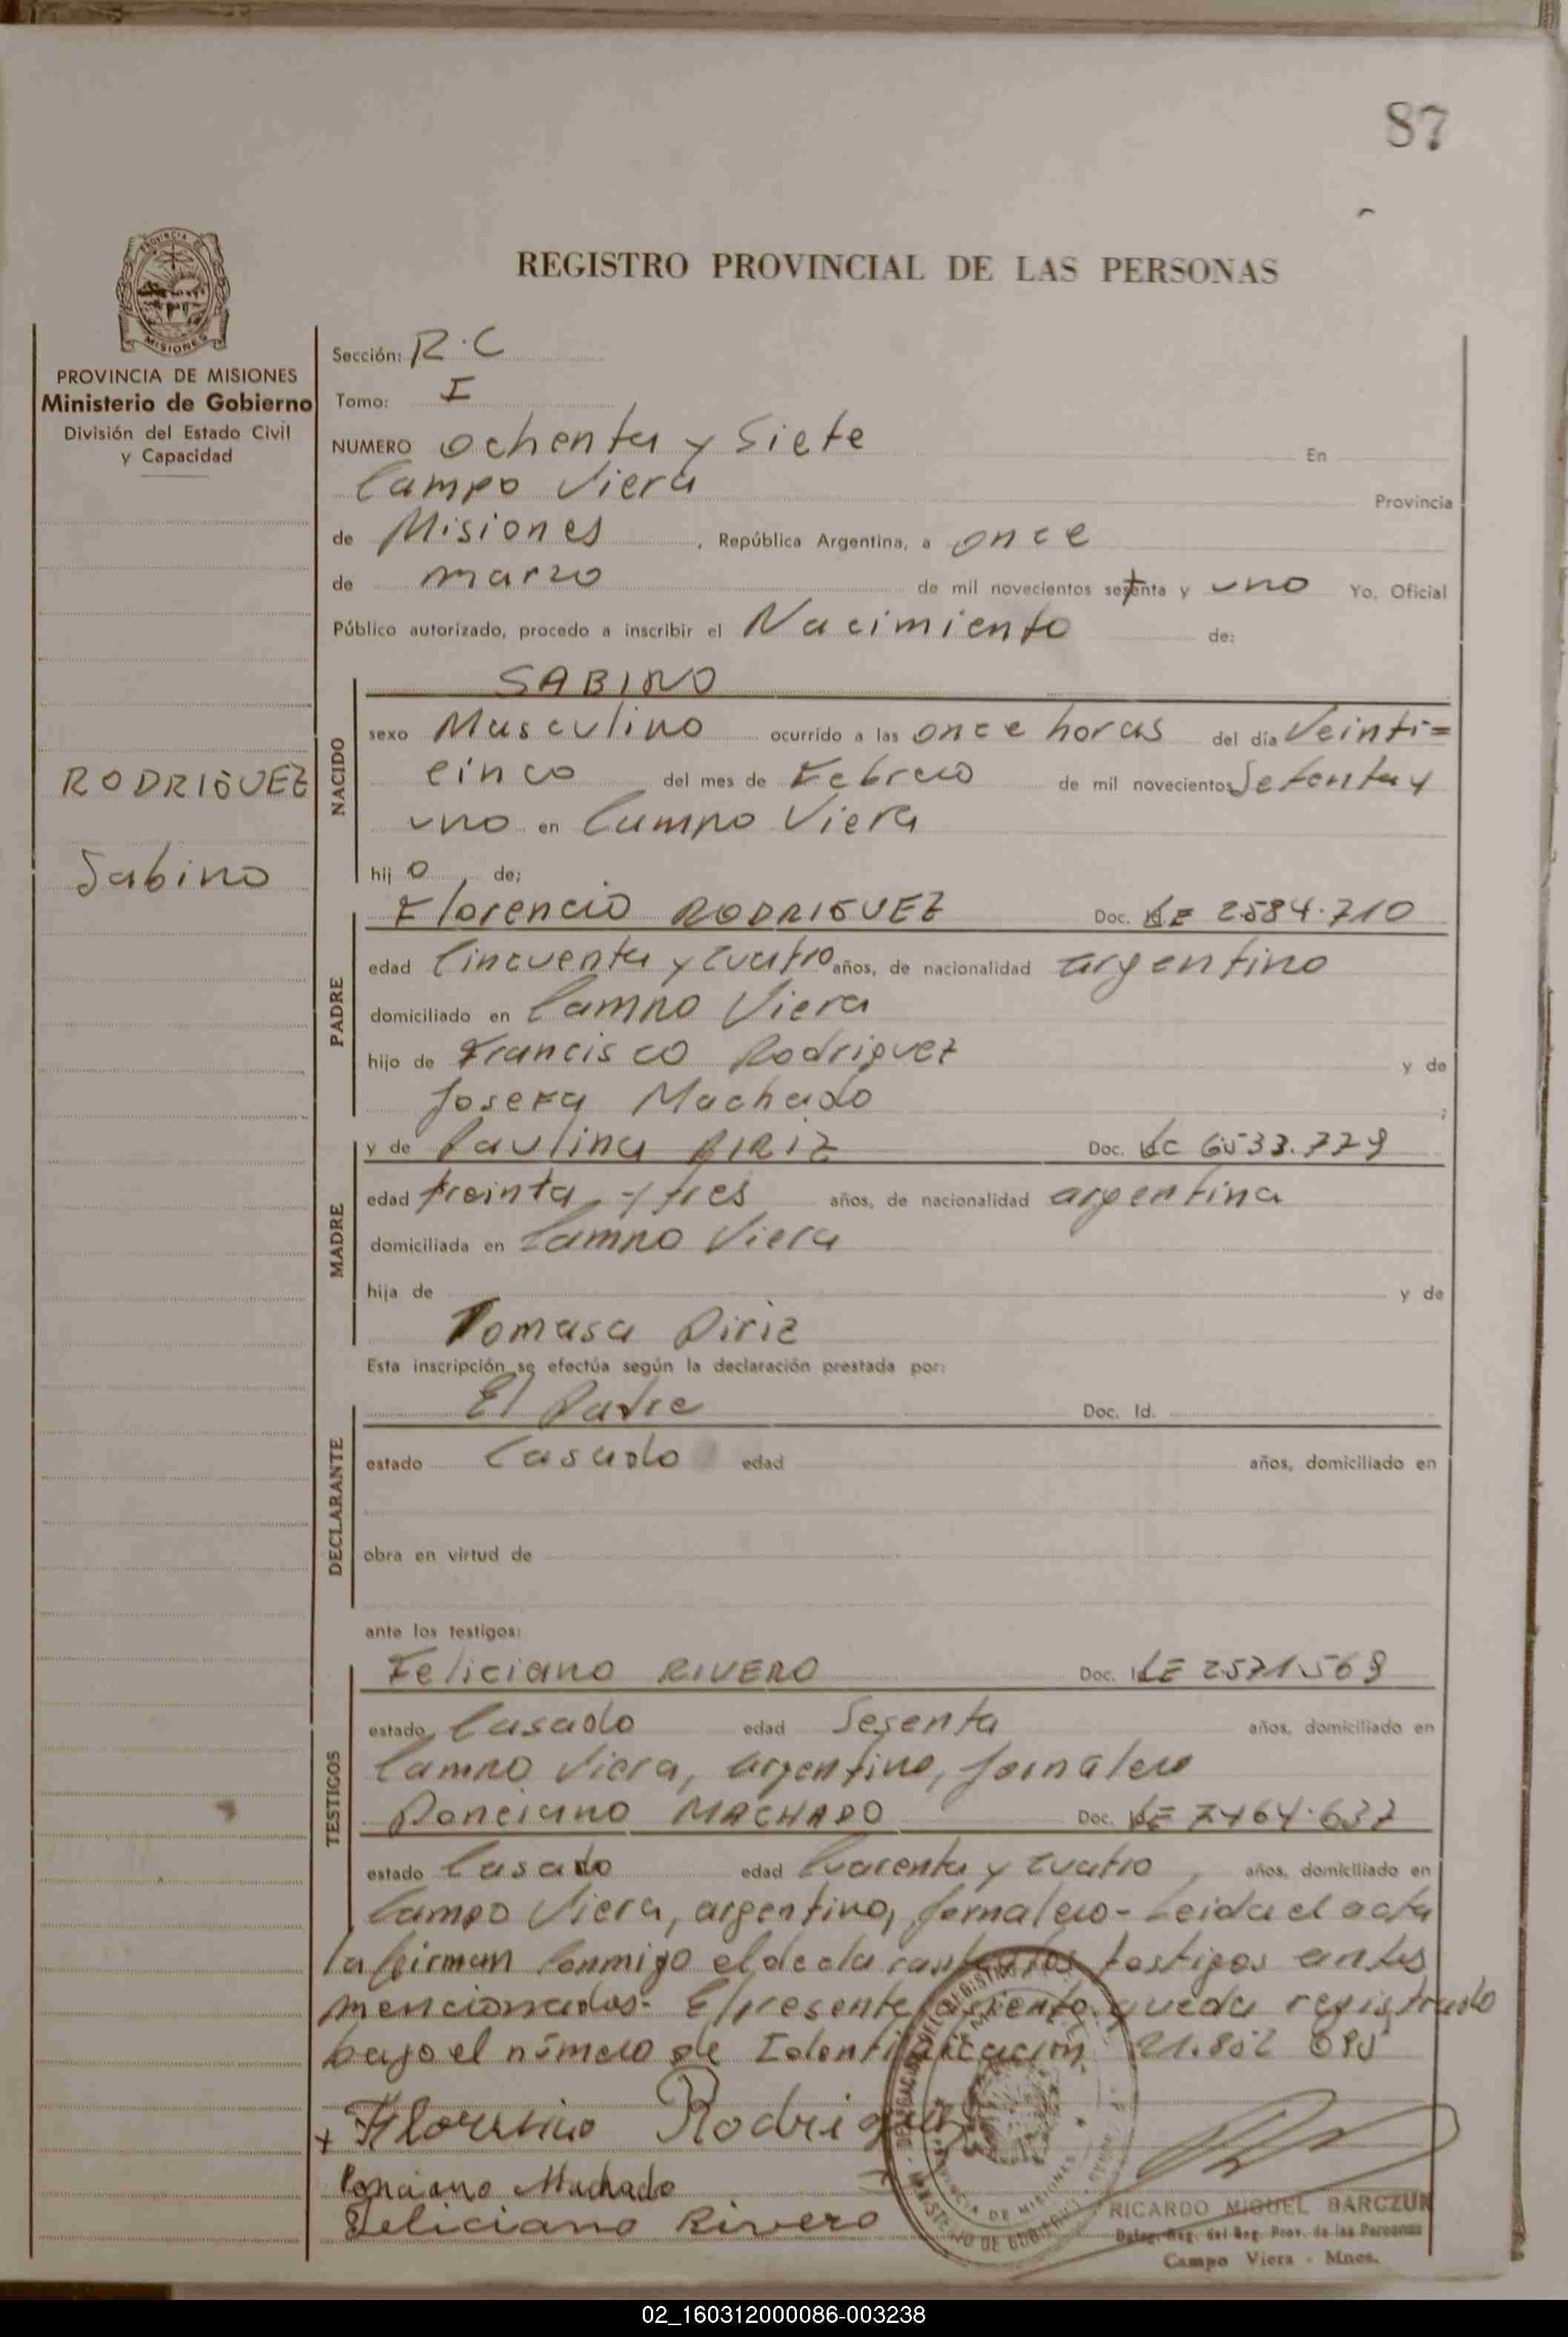 87
REGISTRO PROVINCIAL DE LAS PERSONAS
PROVINCIA DE MISIONES
Ministerio de Gobierno
División del Estado Civil
y Capacidad
RODRIGUEZ
Sabino
Sección: R.C
Tomo: I
NUMERO ochenta y Siete En
Campo Viera Provincia
de Misiones, República Argentina, a once
de marzo de mil novecientos setenta y uno Yo, Oficial
Público autorizado, procedo a inscribir el Nacimiento de:
SABINO
NACIDO
sexo Masculino ocurrido a las once horas del día Veinti=
cinco del mes de Febrero de mil novecientos Setenta y
uno en Campo Viera
hijo de:
Florencio RODRIGUEZ Doc. LE 2584.710
PADRE
edad Cincuenta y cuatro años, de nacionalidad argentino
domiciliado en Campo Viera
hijo de Francisco Rodriguez y de
Josefa Machado ;
y de Paulina PIRIZ Doc. LC 6533.779
MADRE
edad treinta y tres años, de nacionalidad argentina
domiciliada en Campo Viera
hija de y de
Tomasa Piriz
Esta inscripción se efectúa según la declaración prestada por:
El Padre Doc. Id.
DECLARANTE
estado Casado edad años, domiciliado en
obra en virtud de
ante los testigos:
Feliciano RIVERO Doc. LE 2571.569
TESTIGOS
estado Casado edad Sesenta años, domiciliado en
Campo Viera, argentino, jornalero
Ponciano MACHADO Doc. LE 7464.637
estado Casado edad Cuarenta y cuatro, años, domiciliado en
Campo Viera, argentino, jornalero- Leida el acta
la firman Conmigo el declarante y los testigos antes
mencionados- El presente asiento queda registrado
bajo el número de Identificación 21.852
Florencio Rodriguez
Ponciano Machado
Feliciano Rivero
RICARDO MIGUEL BARCZUK
Deleg. Reg. del Reg. Prov. de las Personas
Campo Viera - Mnes.
02_160312000086-003238